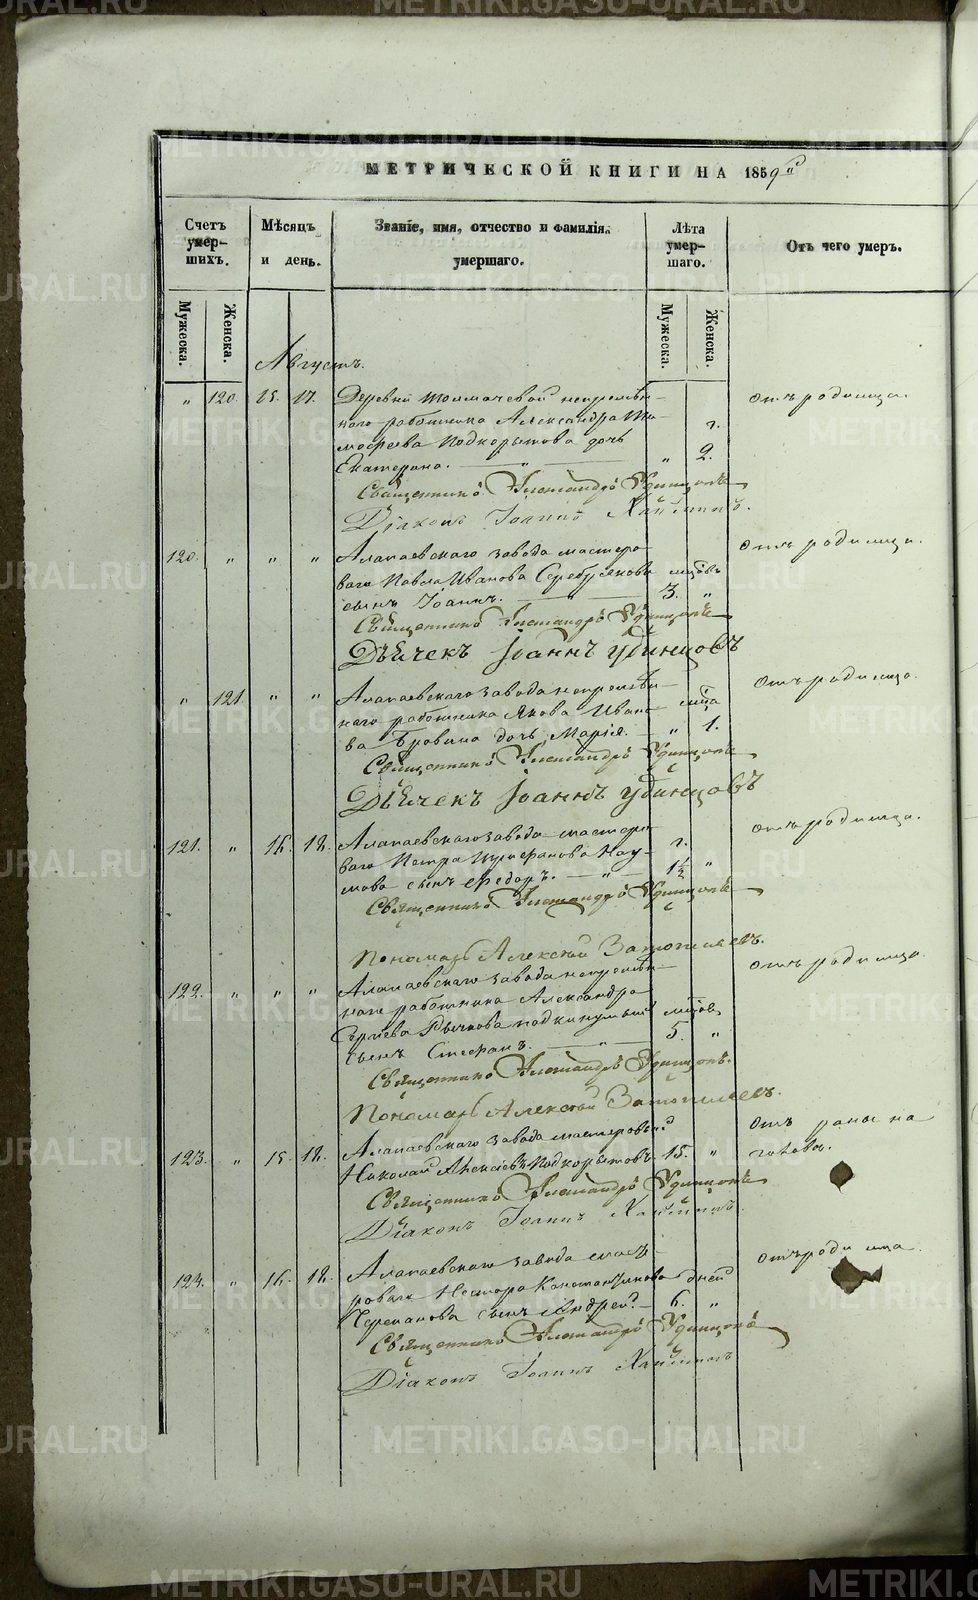 МЕТРИЧЕСКОЙ КНИГИ НА 1859й
Счетъ умер-шихъ.
Мѣсяцъ и день.
Званіе, имя, отчество и фамилія. умершаго.
Лѣта умер-шаго.
Отъ чего умеръ.
Мужеска.
Женска.
Мужеска.
Женска.
Августъ.
„ 120. 15. 17. Деревни Толмачевой непремѣн- отъ родимца.
наго работника Александра Ти- г.
мофеева Подкорытова дочь „ 2.
Екатерина.
Священникъ Александръ Удинцовъ
Діаконъ Іоаннъ
120. „ „ „ Алапаевскаго завода мастеро- Отъ родимца.
ваго Павла Иванова Серебрякова мѣсяцовъ
сынъ Іоаннъ. 3. „
Священникъ Александръ Удинцовъ
Дьячекъ Іоаннъ Удинцовъ
„ 121 „ „ Алапаевскаго завода непремѣн- Отъ родимца.
наго работника Якова Ивано- мѣсяца
ва Бровина дочь Марія. „ 1.
Священникъ Александръ Удинцовъ
Дьячекъ Іоаннъ Удинцовъ
121. „ 16. 18. Алапаевскаго завода мастеро- отъ родимца.
ваго Петра Нау- г.
мова сынъ Ѳедоръ. 1½ „
Священникъ Александръ Удинцовъ
Пономарь Алексѣй
122. „ „ „ Алапаевскаго завода непремѣн- отъ родимца
наго работника Александра
Сергѣева Рычкова подкинутый мѣсяцов
сынъ Стефанъ. 5. „
Священникъ Александръ Удинцовъ.
Пономарь Алексѣй
123. „ 15. 18. Алапаевскаго завода мастеровой Отъ раны на
Николай Алексѣевъ Подкорытовъ. 15. „ головѣ.
Священникъ Александръ Удинцовъ
Діаконъ Іоаннъ
124. „ 16. 18. Алапаевскаго завода масте- отъ родимца.
роваго Нестора Константинова дней
Черепанова сынъ Андрей. 6. „
Священникъ Александръ Удинцовъ
Діаконъ Іоаннъ
METRIKI.GASO-URAL.RU